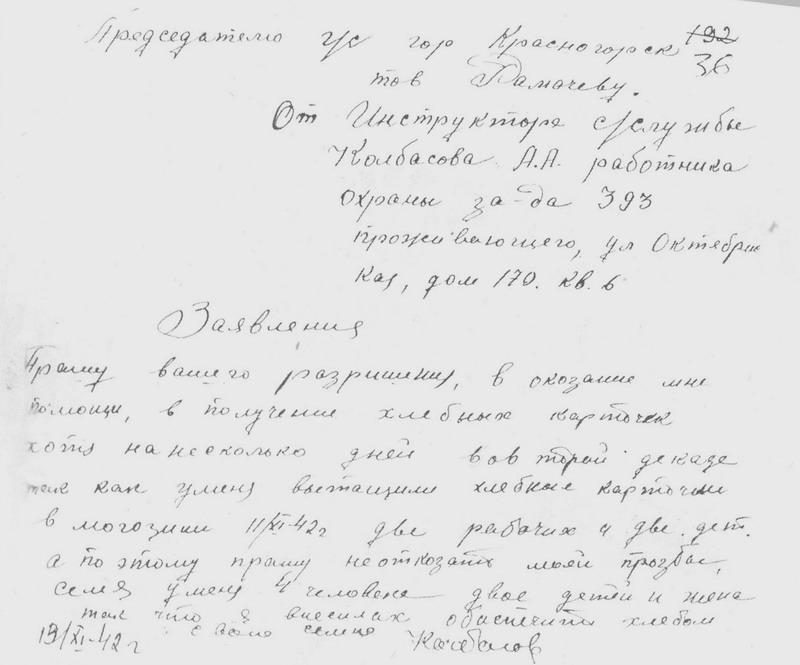 Председателю г/с гор Красногорск 192
36
тов Рамачеву.
От Инструктора с/службы
Колбасова А.А. работника
охраны за-да 393
проживающего, ул Октябрьс
кая, дом 170. кв. 6
Заявления
Прашу вашего разришения, в оказание мне
помощи, в получение хлебных карточек
хотя на несколько дней вовторой декаде
так как уменя вытащили хлебные карточки
в могозини 11/XI-42г две рабочих и две дет.
а по этому прашу неотказать моей прозбы,
семя уменя 4 человека двое детей и жена
так что я внесилах обиспечить хлебом
свою семю
13/XI-42г